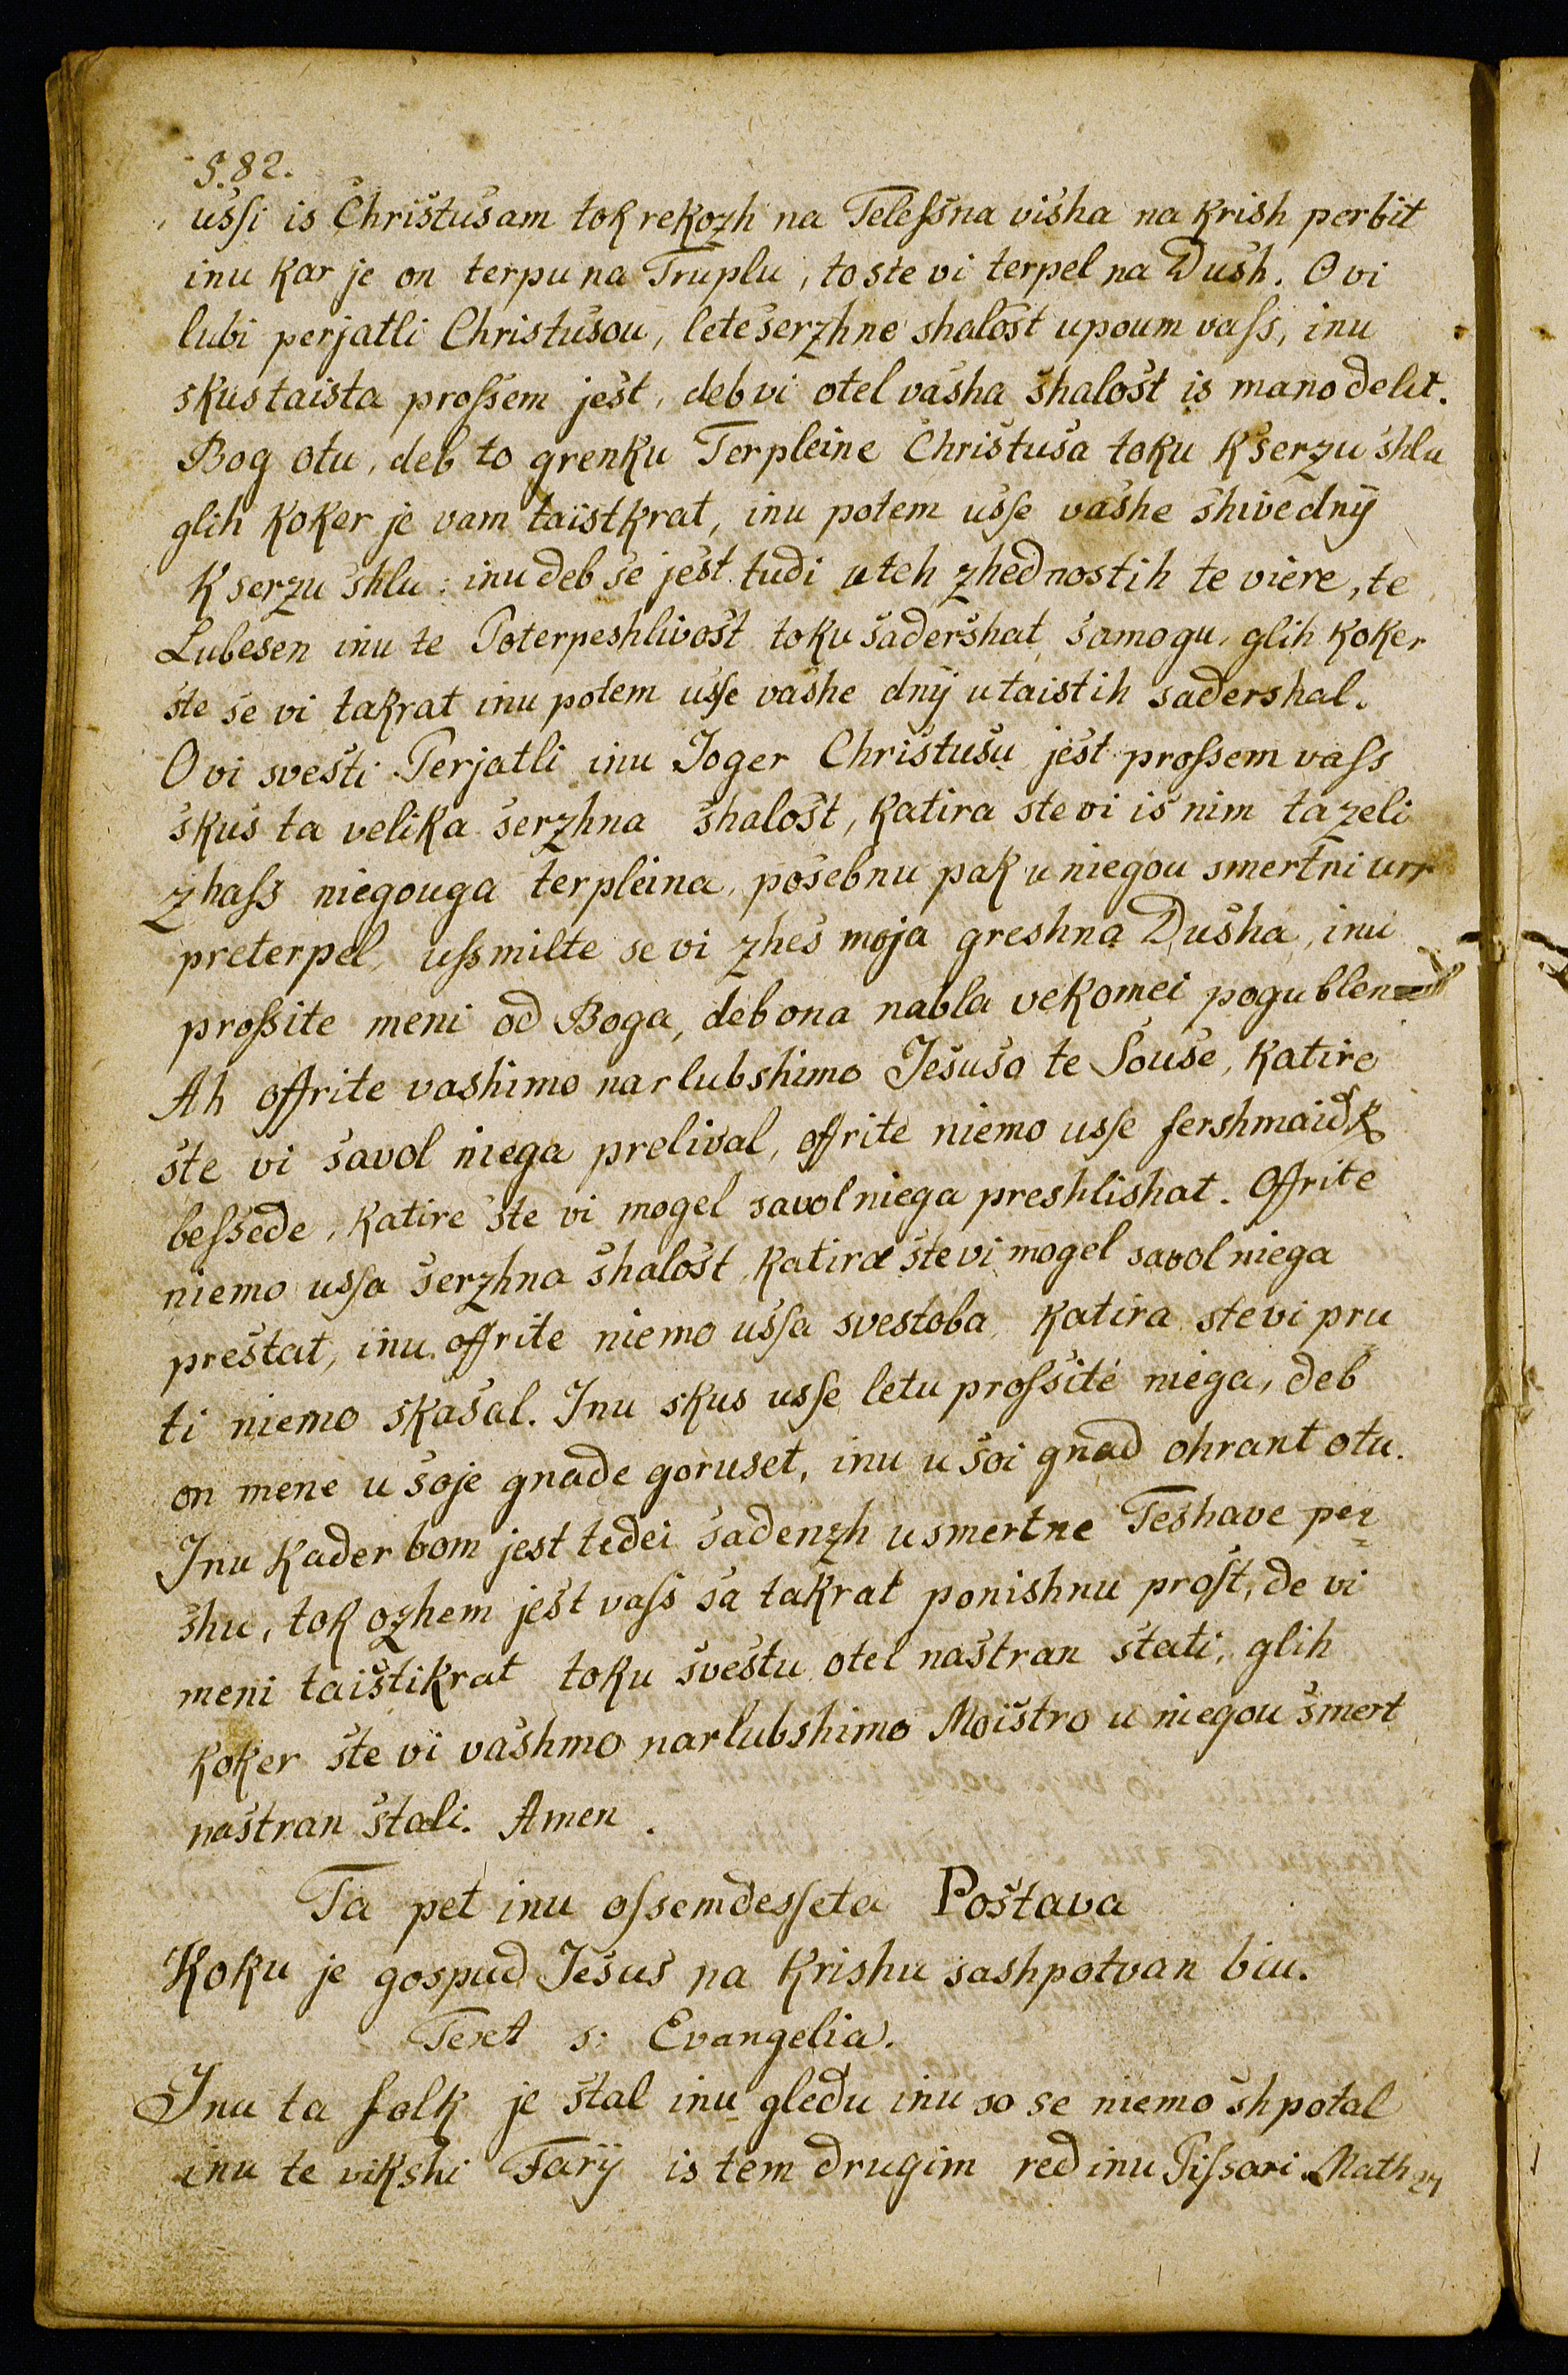 §.82.
usſi is Chriſtuſam tok rekozh na Teleſsna visha na krish perbit
inu kar je on terpu na Truplu, to ste vi terpel na Dush. O vi
lubi perjatli Christusou, lete serzhne shalost upoum vaſs, inu
skus taista proſsem jest, deb vi otel vasha shalost is mano delit.
Bog otu, deb to grenku Terpleine Christusa toku k serzu shlu
glih koker je vam taistkrat, inu potem usſe vashe shive dnÿ
k serzu shlu: inu deb se jest tudi u teh zhednostih te viere, te
Lubesen inu te Poterpeshlivost toku sadershat samogu, glih koker
ste se vi takrat inu potem usſe vashe dnÿ u taistih sadershal.
O vi svesti Perjatli inu Joger Christusu jest proſsem vaſs
skus ta velika serzhna shalost, katira ste vi is nim ta zeli
zhaſs niegouga terpleina, posebnu pak u niegou smertni urr
preterpel, uſsmilte se vi zhes moja greshna Dusha, inu
proſsite meni od Boga, deb ona nabla vekomei pogublen
Ah offrite vashimo narlubshimo Jesuso te Souse, katire
ste vi savol niega prelival, offrite niemo usſe fershmaidk
beſsede, katire ste vi mogel savol niega preshlishat. Offrite
niemo usſa serzhna shalost katira ste vi mogel savol niega
prestat, inu offrite niemo usſa svestoba katira ste vi pru
ti niemo skasal. Inu skus usſe letu proſsite niega, deb
on mene u soje gnade goruset, inu u soi gnad ohrant otu.
Inu kader bom jest tedei sadenzh u smertne Teshave per=
shu, tok ozhem jest vaſs sa takrat ponishnu proſt, de vi
meni taistikrat toku svestu otel nastran stati, glih
koker ste vi vashmo narlubshimo Moistro u niegou smert
nastran stali. Amen.
Ta pet inu oſsemdesſeta Postava
Koku je gospud Jesus na krishu sashpotvan biu.
Text s: Evangelia.
Inu ta folk je stal inu gledu inu so se niemo shpotal
inu te vikshi Farÿ is tem drugim red inu Piſsari Math 27